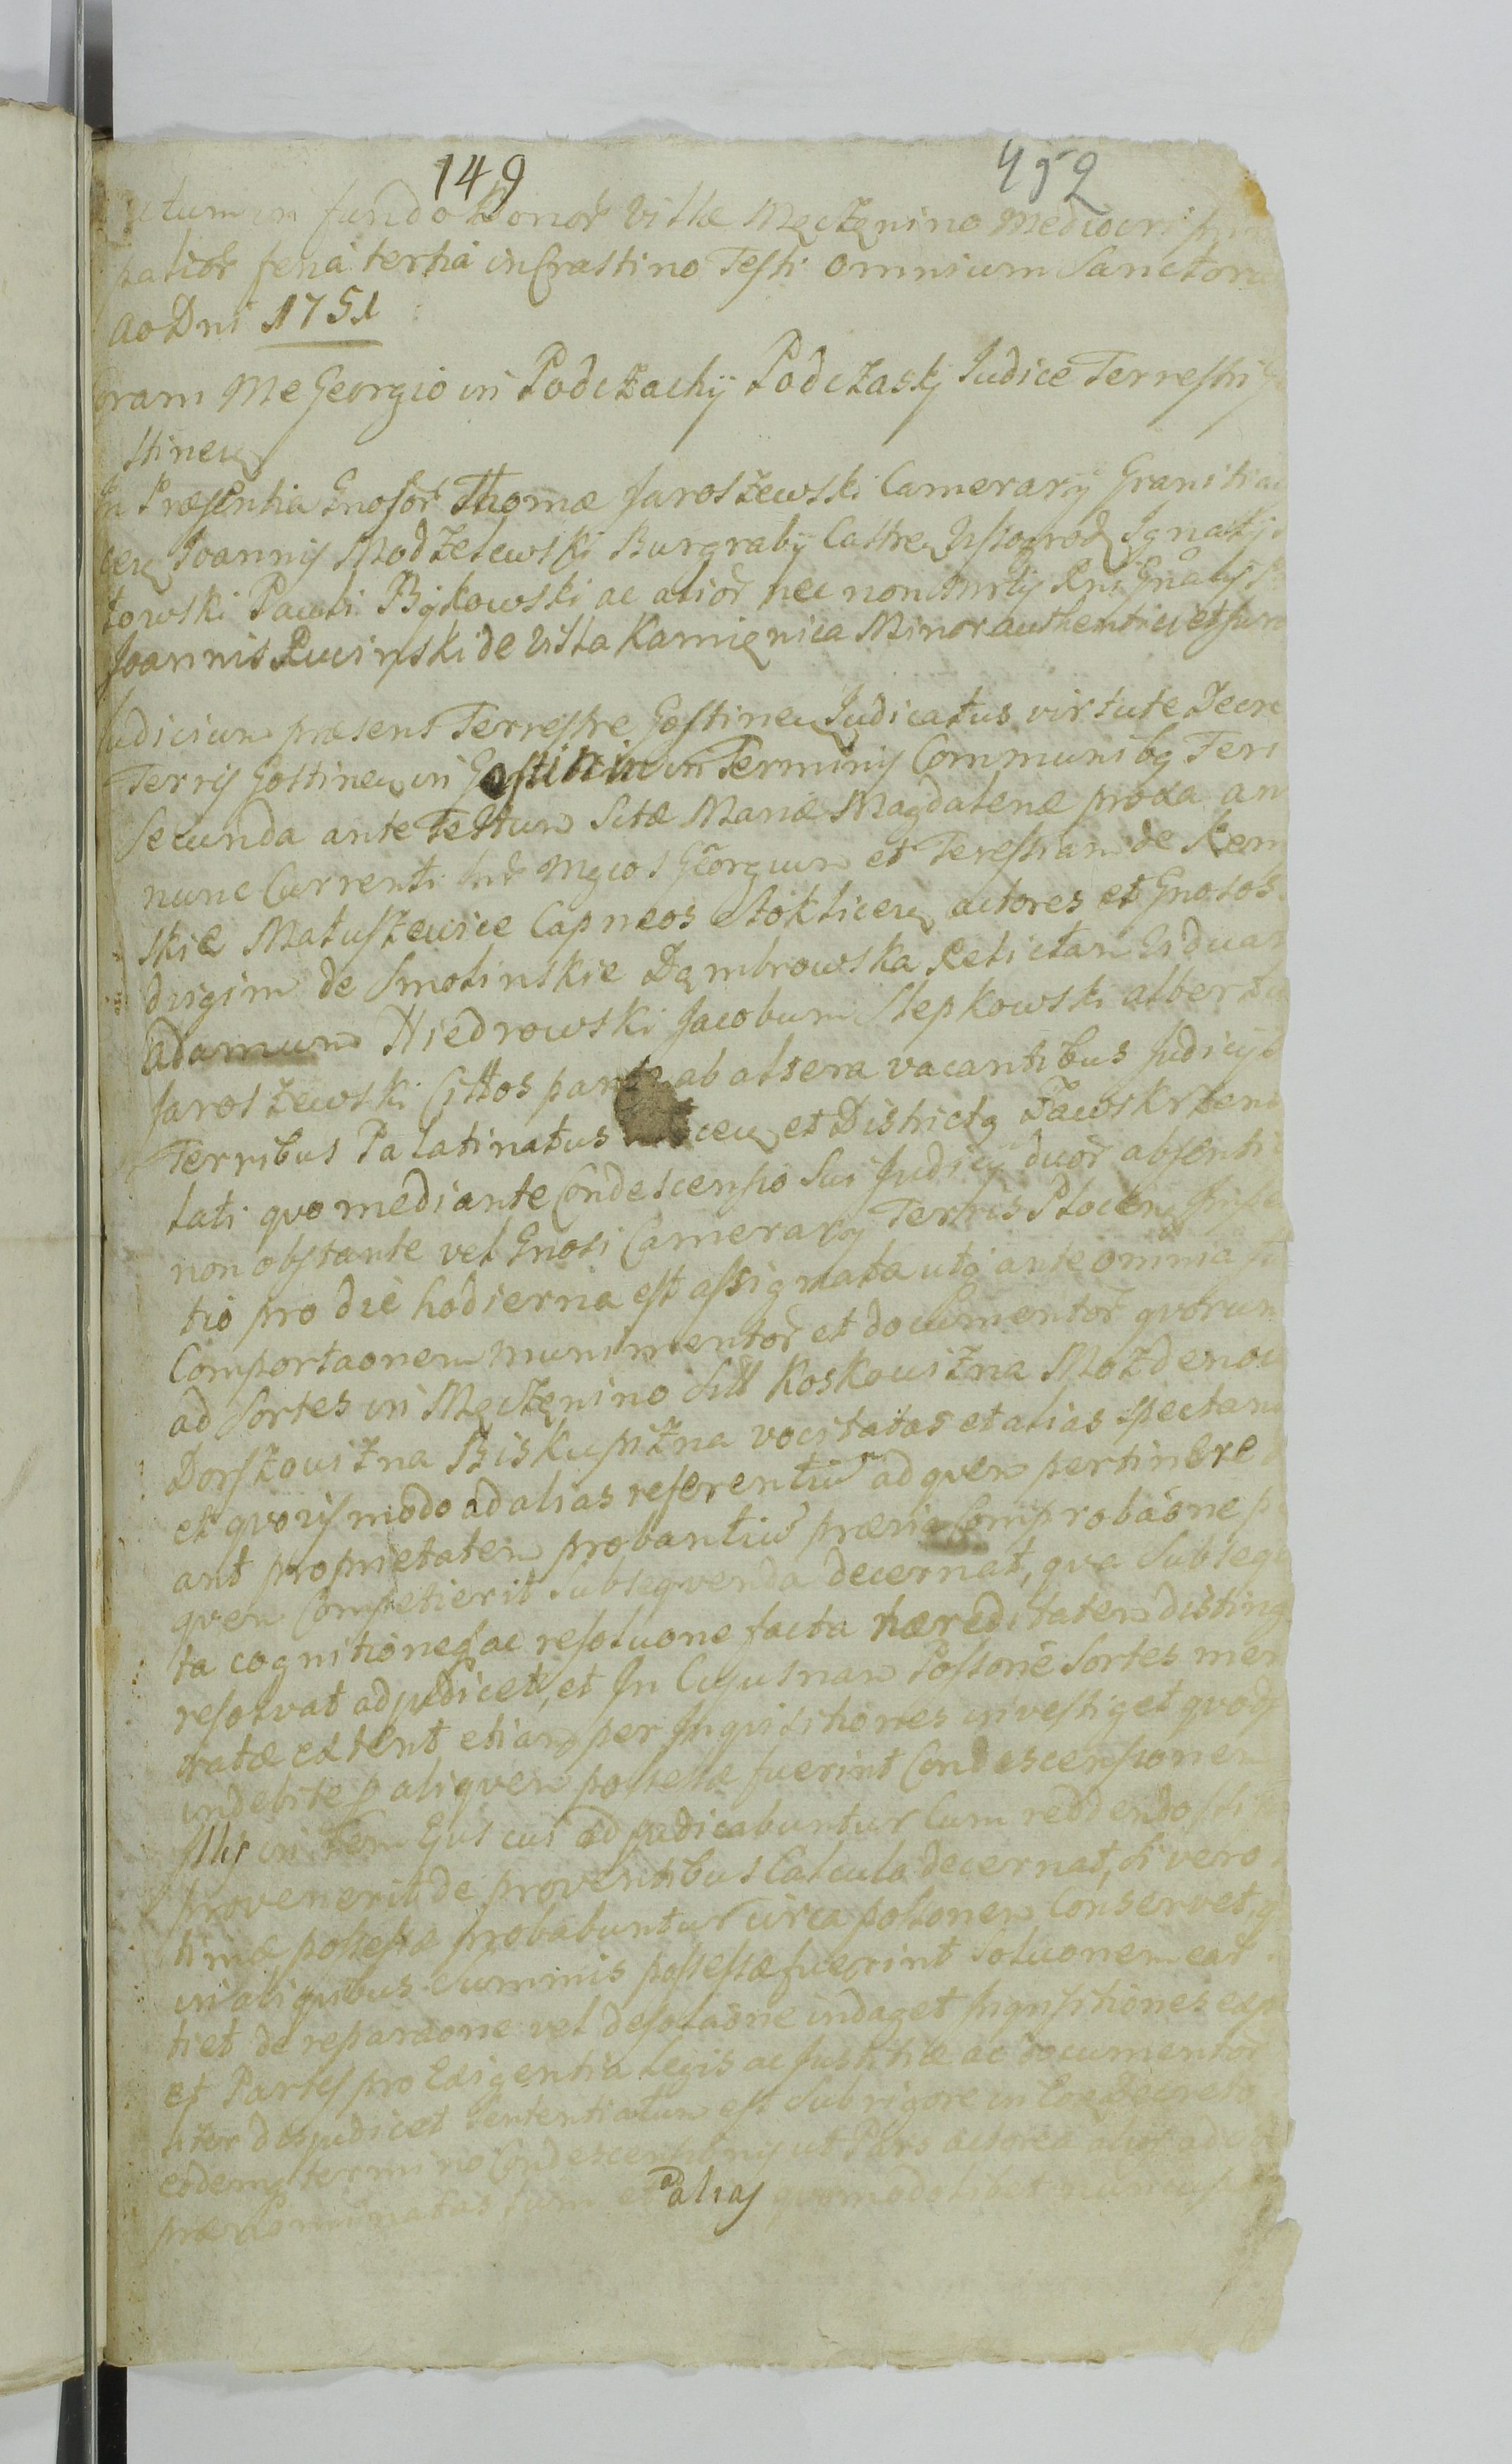 149 452
in fundo Bonor Villæ Męczęnino Mediocri
feria tertia in Crastino Festi Omnium Sanctoru
Ao Dni 1751
Coram Me Georgio in Podczachy Podczasky Judice Terrestri
stinen
In Præsentia Gnosor Thomæ Jaroszewski Camerarij Granitia
Joannis Modzelewski Burgrabij Castren Wyszogrod Ignatij
towski Pauli Bÿkowski ac alior nec non Mrlij Rni Gnalis
Joannis Rucinski de Villa Kamięnica Minor authentici et
Judicium præsens Terrestre Gostinen Judicatus virtute Decre
Terris Gostinen in Gostinin in Terminis Communibq Terr
Secunda ante Festum Sctæ Mariæ Magdalenæ proxa an
nunc Currenti Intr Mgcos Georgium et Teressiam de
skie Matuszewice Capneos Stoklicen actores et Gnosos
dvigim de Smolinskie Dąmbrowska Relictam Viduam
adamum Niedrowski Jacobum Stepkowski albertu
Jaroszewski Cittos parte ab altera vacantibus Judicijb
Terribus Palatinatus et Districtq Zawskrzens
lati quo mediante Condescensio Sui Judicij duor absenti
non obstante vel Gnosi Camerarij Terris Plocen
tio pro die hodierna est assignata utq ante omnia
Comportaonem munimentor et documentor quorum
ad Sortes in Męczęnino Sill Koskowizna Mozdenow
Dorszowizna Biskupizna vocitatas et alias spectan
et quovis modo ad alias referentiu ad quem pertinere
ant proprietatem probantiu prævia Comprobaone
quem Competierit Subsequenda decernat, qva Subseqv
ta cognitione ac resoluone facta hæreditatem disting
resolvat adjudicet, et In Cujusnam Possone Sortes me
ratæ extent etiam per Inquisitiones investiget quod
indebite p aliquem possessæ fuerint Condescensionem
Illis in Rem Ejus cui adjudicabuntur Cum reddendo
provenerit de proventibus Calculo decernat, si vero
timæ possessæ probabuntur circa possonem Conservet,
in aliquibus summis possessæ fuerint Soluonem earu
tiet de reparaone vel desolaone indaget Inqisitiones
et Partes pro Exigentia Legis ac Justitiæ ac documentor
liter dijudicet Sententiatum est Sub rigore in Eoe Decreto
eodemq termino Condescensionis ut Pars actorea
prænominatas Sum et ad alias quomodolibet nuncup